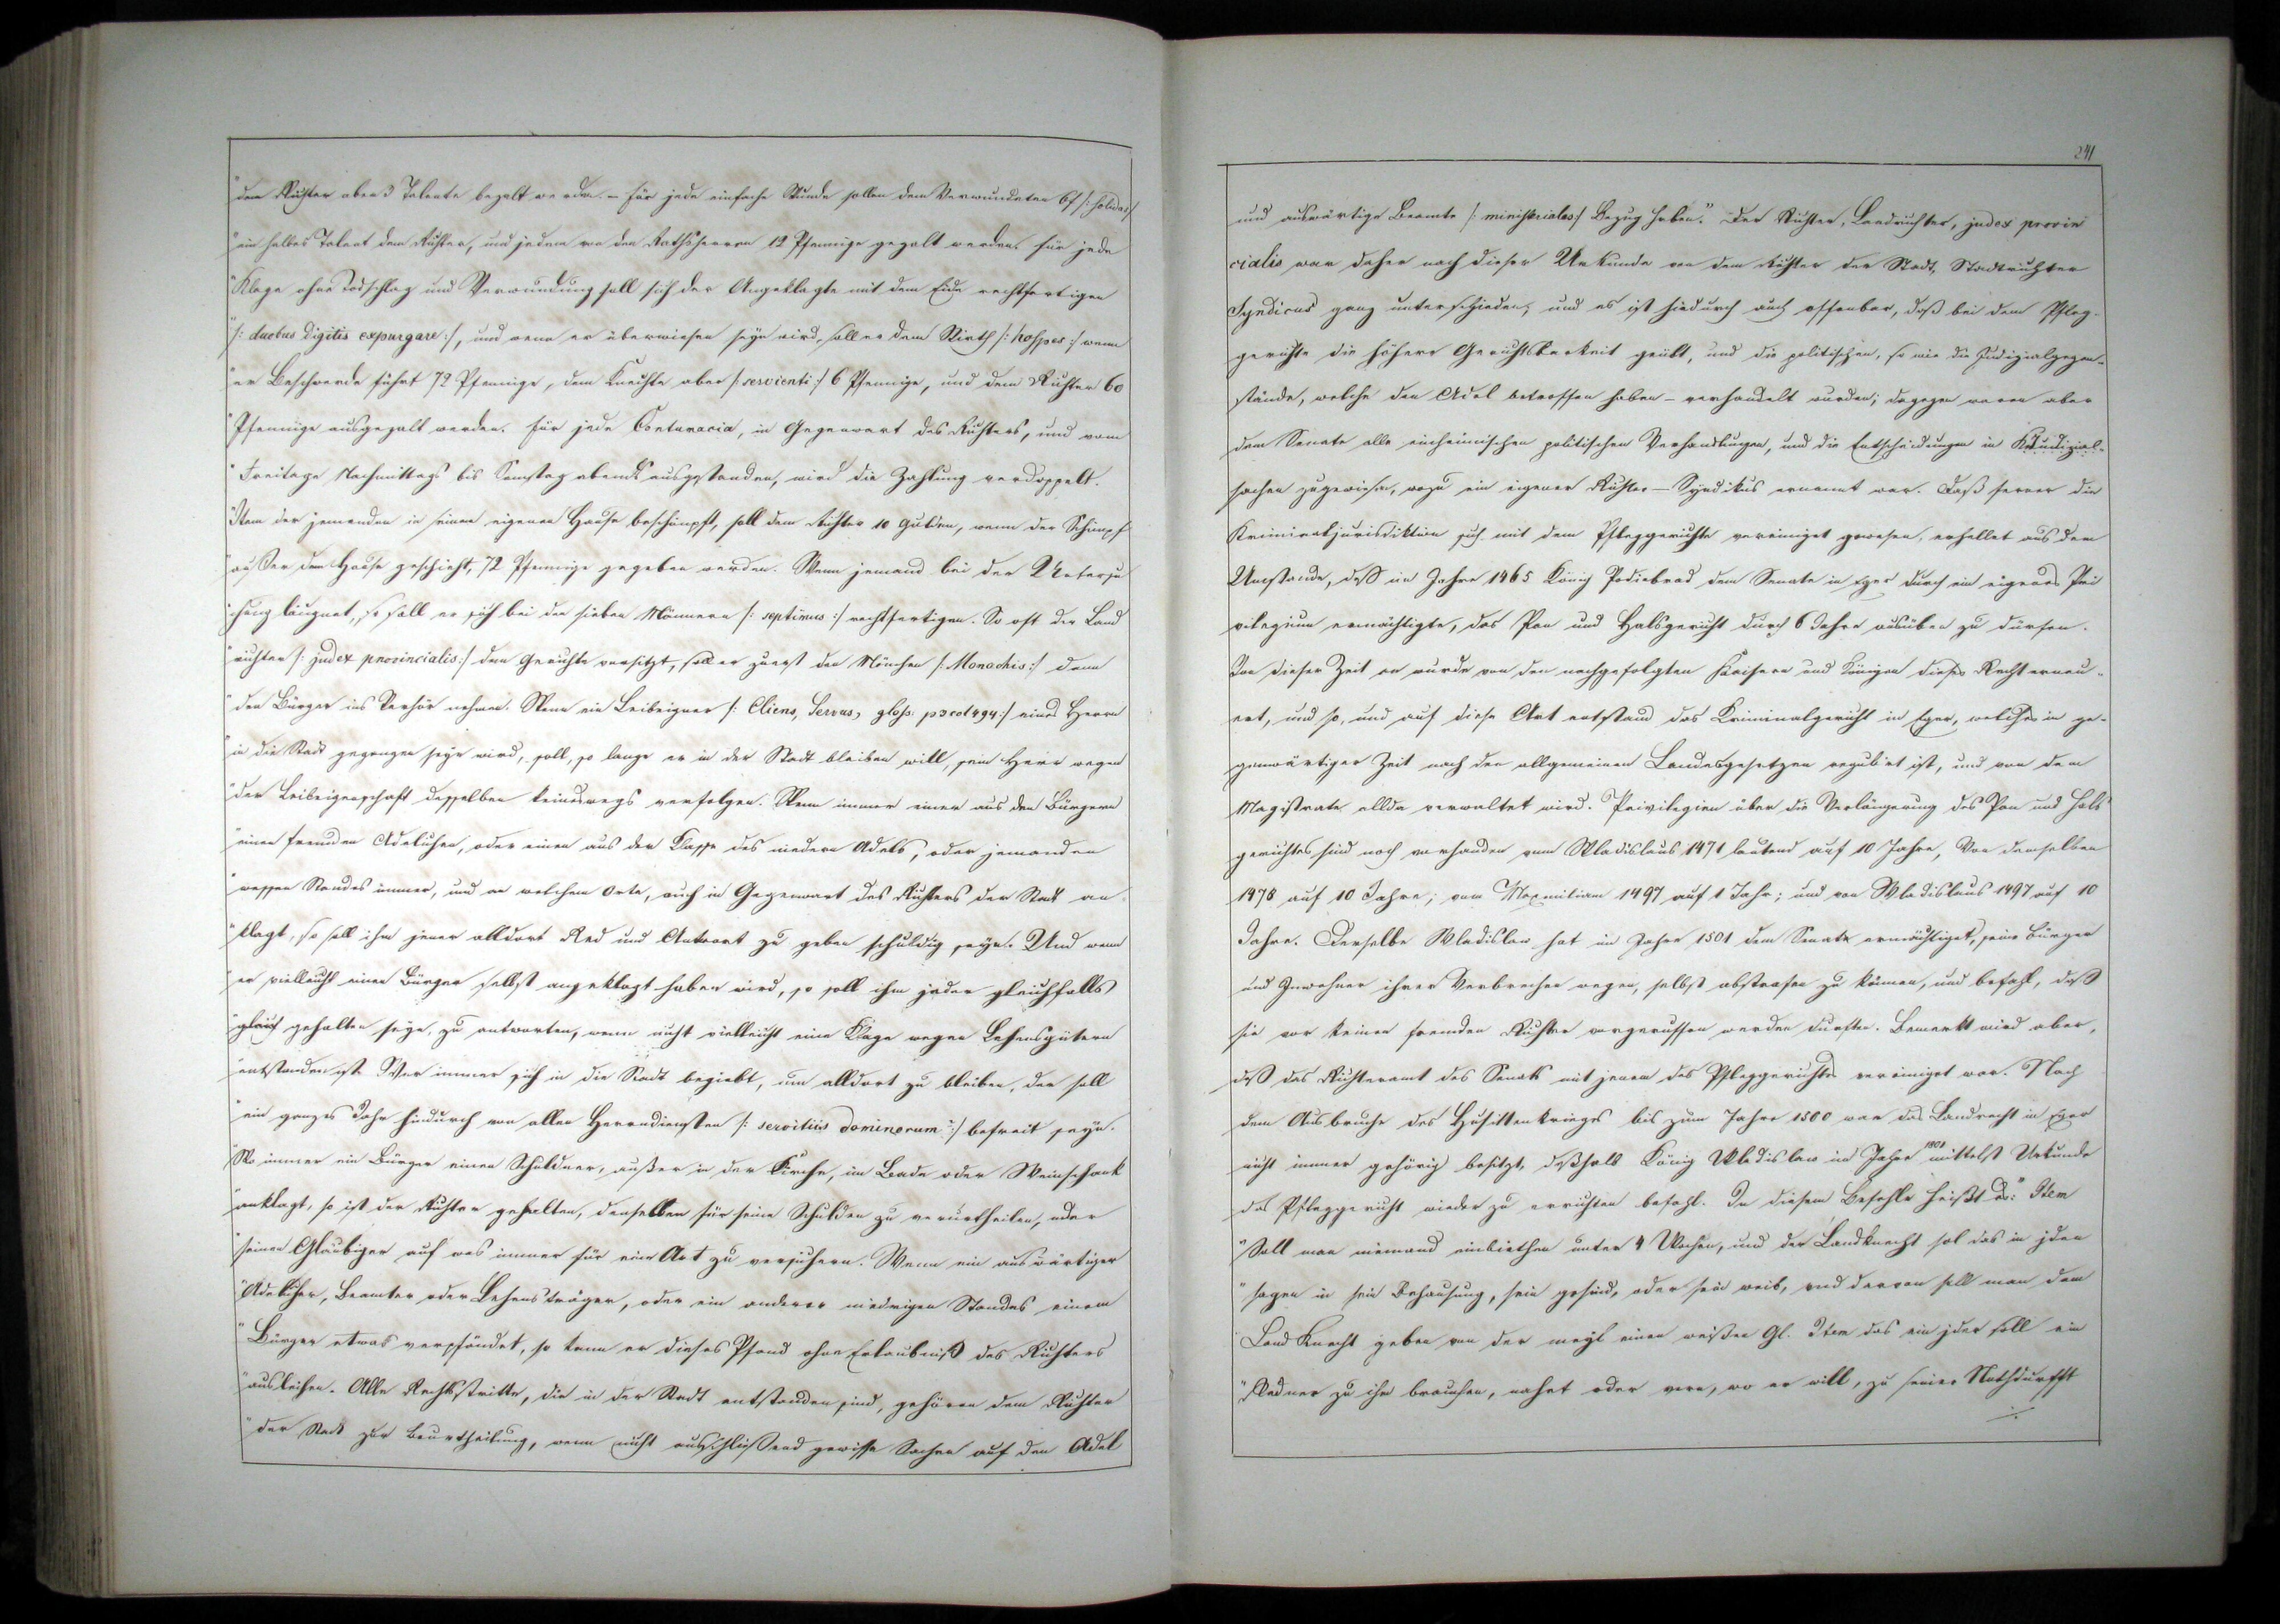 "dem Richter aber 3 Talente bezalt werden. – Für jede einfache Wunde sollen dem Verwundeten 6 f /: solidos :/
"ein halbes Talent dem Richter, und jedem von den Rathsherren 12 Pfennige gezalt werden. Für jede
"Klage ohne Todschlag und Verwundung soll sich der Angeklagte mit dem Eide rechtfertigen
"/: duobus digitis expurgare :/, und wenn er überwiesen seyn wird, soll er dem Wirth /: hospes :/ wenn
"er Beschwerde führt 72 Pfennige, dem Knechte aber /: servienti :/ 6 Pfennige, und dem Richter 60
"Pfennige ausgezalt werden. Für jede Contumacia, in Gegenwart des Richters, und vom
"Freitage Nachmittags bis Samstag abends ausgestanden, wird die Zahlung verdoppelt.
"Item der jemanden in seinem eigenen Hause beschimpft, soll dem Richter 10 Gulden, wenn der Schimpf
"außer dem Hause geschieht, 72 Pfennige gegeben werden. Wenn jemand bei der Untersu
"chung läugnet, so soll er sich bei den sieben Männern /: septimus :/ rechtfertigen. So oft der Land
"richter /: judex provincialis :/ dem Gerichte vorsitzt, soll er zuerst den Mönchen /: Monachis :/ dann
"den Bürger ins Verhör nehmen. Wenn ein Leibeigner /: Cliens, Servus, gloss: p3 col 494 :/ eines Herrn
"in die Stadt gegangen seyn wird, soll, so lange er in der Stadt bleiben will, sein Herr wegen
"der Leibeigenschaft desselben keineswegs verfolgen. Wenn immer einer aus den Bürgern
"einen fremden Adelichen, oder einen aus der Klasse des niedern Adels, oder jemanden
"wessen Standes immer, und an welchem Orte, auch in Gegenwart des Richters der Stadt an
"klagt, so soll ihm jener alldort Red und Antwort zu geben schuldig seyn. Und wenn
"er vielleicht einen Bürger selbst angeklagt haben wird, so soll ihm jeder gleichfalls
"gleich gehalten seyn, zu antworten, wenn nicht vielleicht eine Klage wegen Lehensgütern
"entstanden ist. Wer immer sich in die Stadt begiebt, um alldort zu bleiben, der soll
"ein ganzes Jahr hindurch von allen Herrendiensten /: servitiis dominorum :/ befreit seyn.
"Wo immer ein Bürger einen Schuldner, außer in der Kirche, im Bade oder Weinschank
"anklagt, so ist der Richter gehalten, denselben für seine Schulden zu verurtheilen, oder
"seinen Gläubiger auf was immer für eine Art zu versichern. Wenn ein auswärtiger
"Adelicher, Beamter oder Lehensträger, oder ein anderer niedrigen Standes einem
"Bürger etwas verpfändet, so kann er dieses Pfand ohne Erlaubniß des Richters
"ausleihen. Alle Rechtsstritte, die in der Stadt entstanden sind, gehören dem Richter
"der Stadt zur Beurtheilung, wenn nicht auschließend gewisse Sachen auf den Adel
241
und auswärtige Beamte /: ministeriales :/ Bezug haben." Der Richter, Landrichter, judex provin
cialis war daher nach dieser Urkunde von dem Richter der Stadt, Stadtrichter
Syndicus ganz unterschieden, und es ist hiedurch auch offenbar, daß bei dem Pfleg-
gerichte die höhere Gerichtsbarkeit geübt, und die politischen, so wie die Judizialgegen-
stände, welche den Adel betroffen haben – verhandelt wurden; dagegen waren aber
dem Senate alle einheimischen politischen Verhandlungen, und die Entscheidungen in Judizial-
sachen zugewiesen, wozu ein eigener Richter – Syndikus ernannt war. Daß ferner die
Kriminaljurisdiktion sich mit dem Pfleggerichte vereiniget gewesen, erhellet aus dem
Umstande, daß im Jahre 1465 König Podiebrad dem Senate in Eger durch ein eigenes Pri
vilegium ermächtigte, das Pan und Halsgericht durch 6 Jahre ausüben zu dürfen.
Von dieser Zeit an wurde von den nachgefolgten Kaisern und Königen dieses Recht erneu-
ert, und so, und auf diese Art entstand das Kriminalgericht in Eger, welches in ge-
genwärtiger Zeit nach den allgemeinen Landesgesetzen regulirt ist, und von dem
Magistrate allda verwaltet wird. Privilegien über die Verlängerung des Pan und Hals
gerichtes sind noch vorhanden vom Wladislaus 1471 lautend auf 10 Jahre, Von demselben
1478 auf 10 Jahre; vom Maxmilian 1497 auf 1 Jahr; und von Wladislaus 1497 auf 10
Jahre. Derselbe Wladislaw hat im Jahre 1501 dem Senate ermächtiget, seine Bürger
und Inwohner ihrer Verbrechen wegen, selbst abstrafen zu können, und befahl, daß
sie vor keinen fremden Richter vorgeruffen werden durften. Bemerkt wird aber,
daß das Richteramt des Senats mit jenem des Pfleggerichts vereiniget war. Nach
dem Ausbruche des Hussittenkrieges bis zum Jahre 1500 war das Landrecht in Eger
nicht immer gehörig besitzt, deßhalb König Wladislaw im Jahre 1501 mittelst Urkunde
das Pfleggericht wieder zu errichten befahl. In diesem Befehle heißt es: "Item
"Soll man niemand einbiethen unter 4 Wochen, und der Landknecht sol das in jden
"sagen in sein Behausung, sein gesind, oder sein weib, und dervon soll man dem
"Land Knecht geben von der meyl einen weißen Gl. Item das ein jder soll ein
"Redner zu ihm brauchen, nahet oder vern, wo er will, zu seiner Nothdurfft